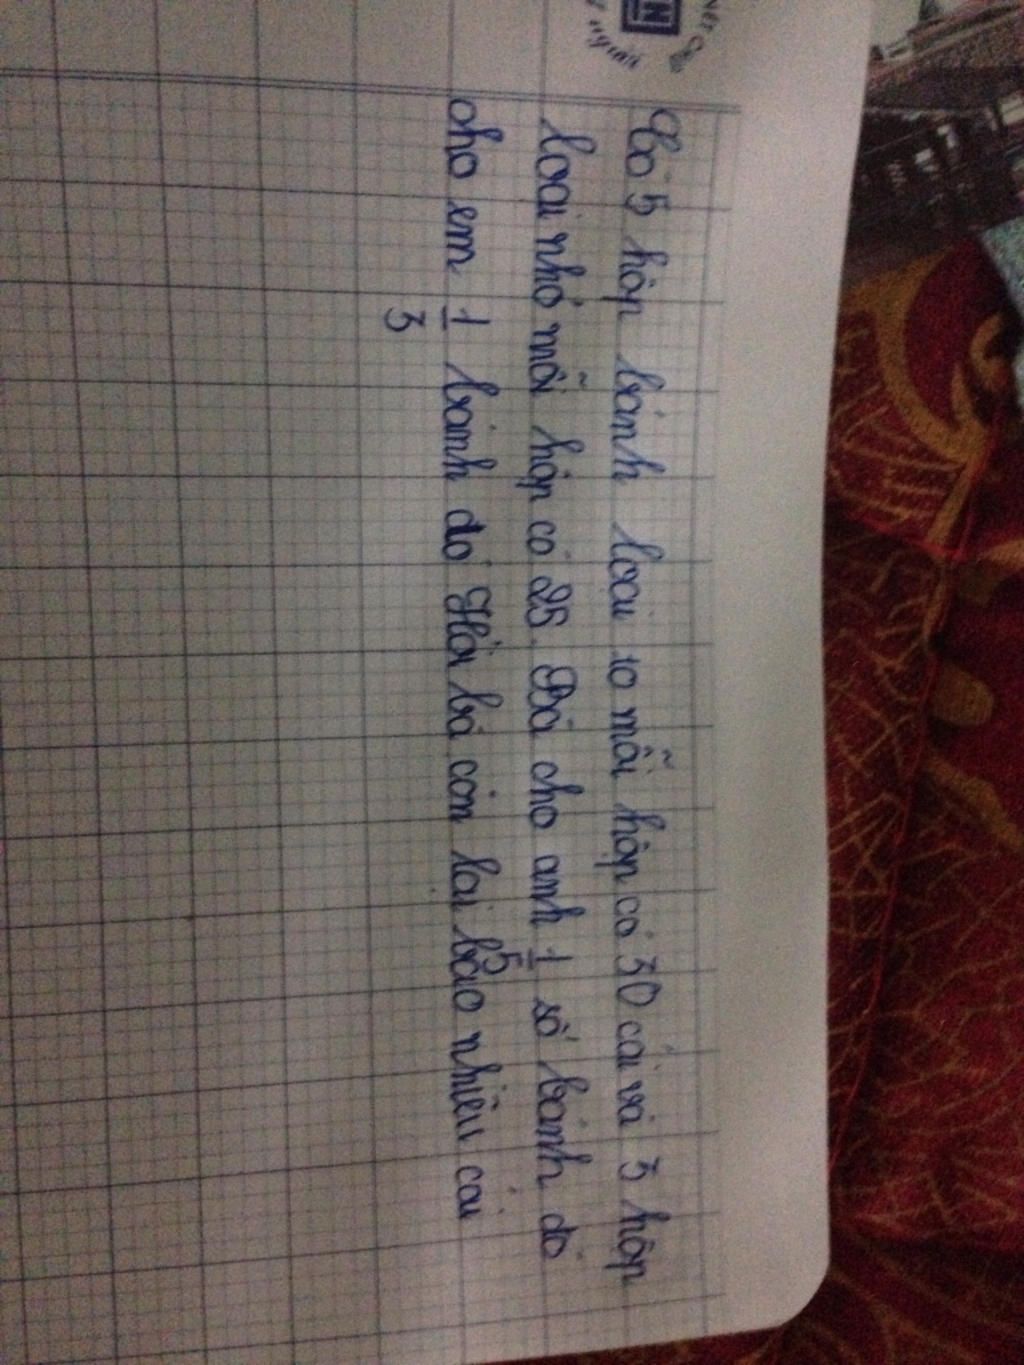 Có 5 hộp bánh loại to mỗi hộp có 30 cái và 3 hộp
loại nhỏ mỗi hộp có 25. Bà cho anh 1/5 số bánh đó
cho em 1/3 bánh đó Hỏi bà còn lại bao nhiêu cái